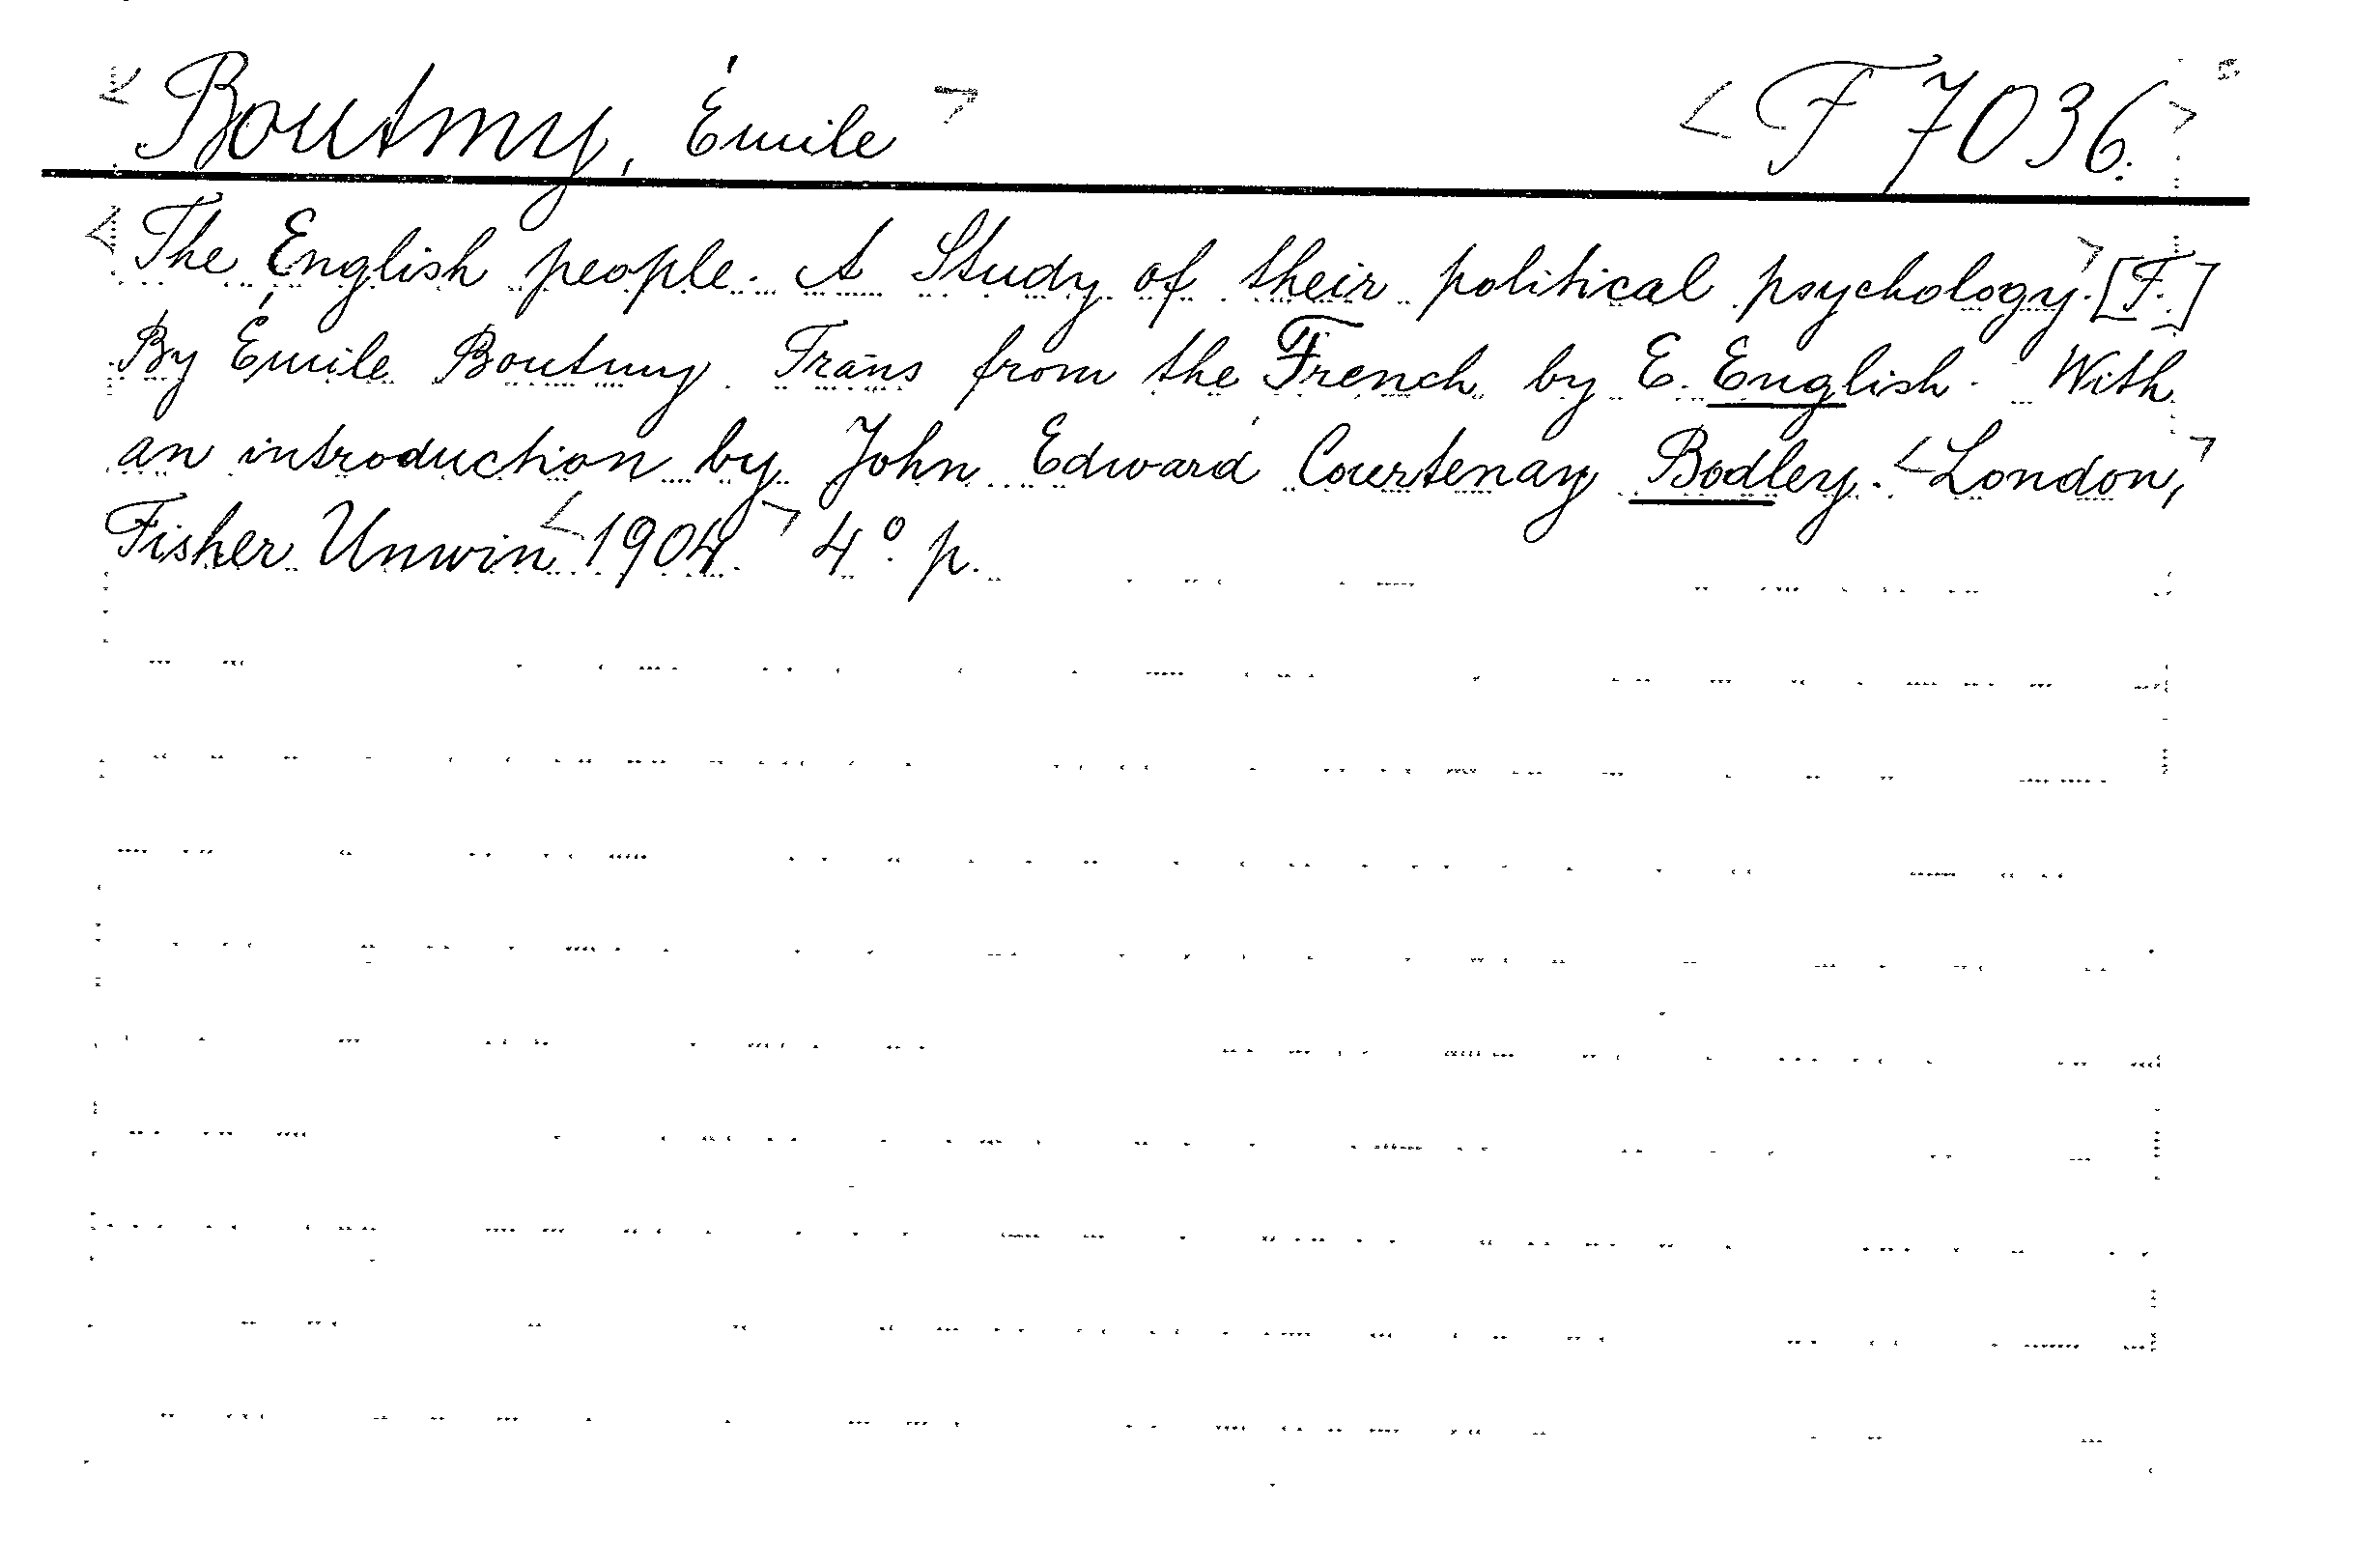 <Boutmy, Émile> <F 7036.>
<The English people. A Study of their political psychology.> [F.]
By Émile Boutmy. Trans from the French by E. English. With
an introduction by John Edward Courtenay Bodley. <London,>
Fisher Unwin <1904.> 4° p.